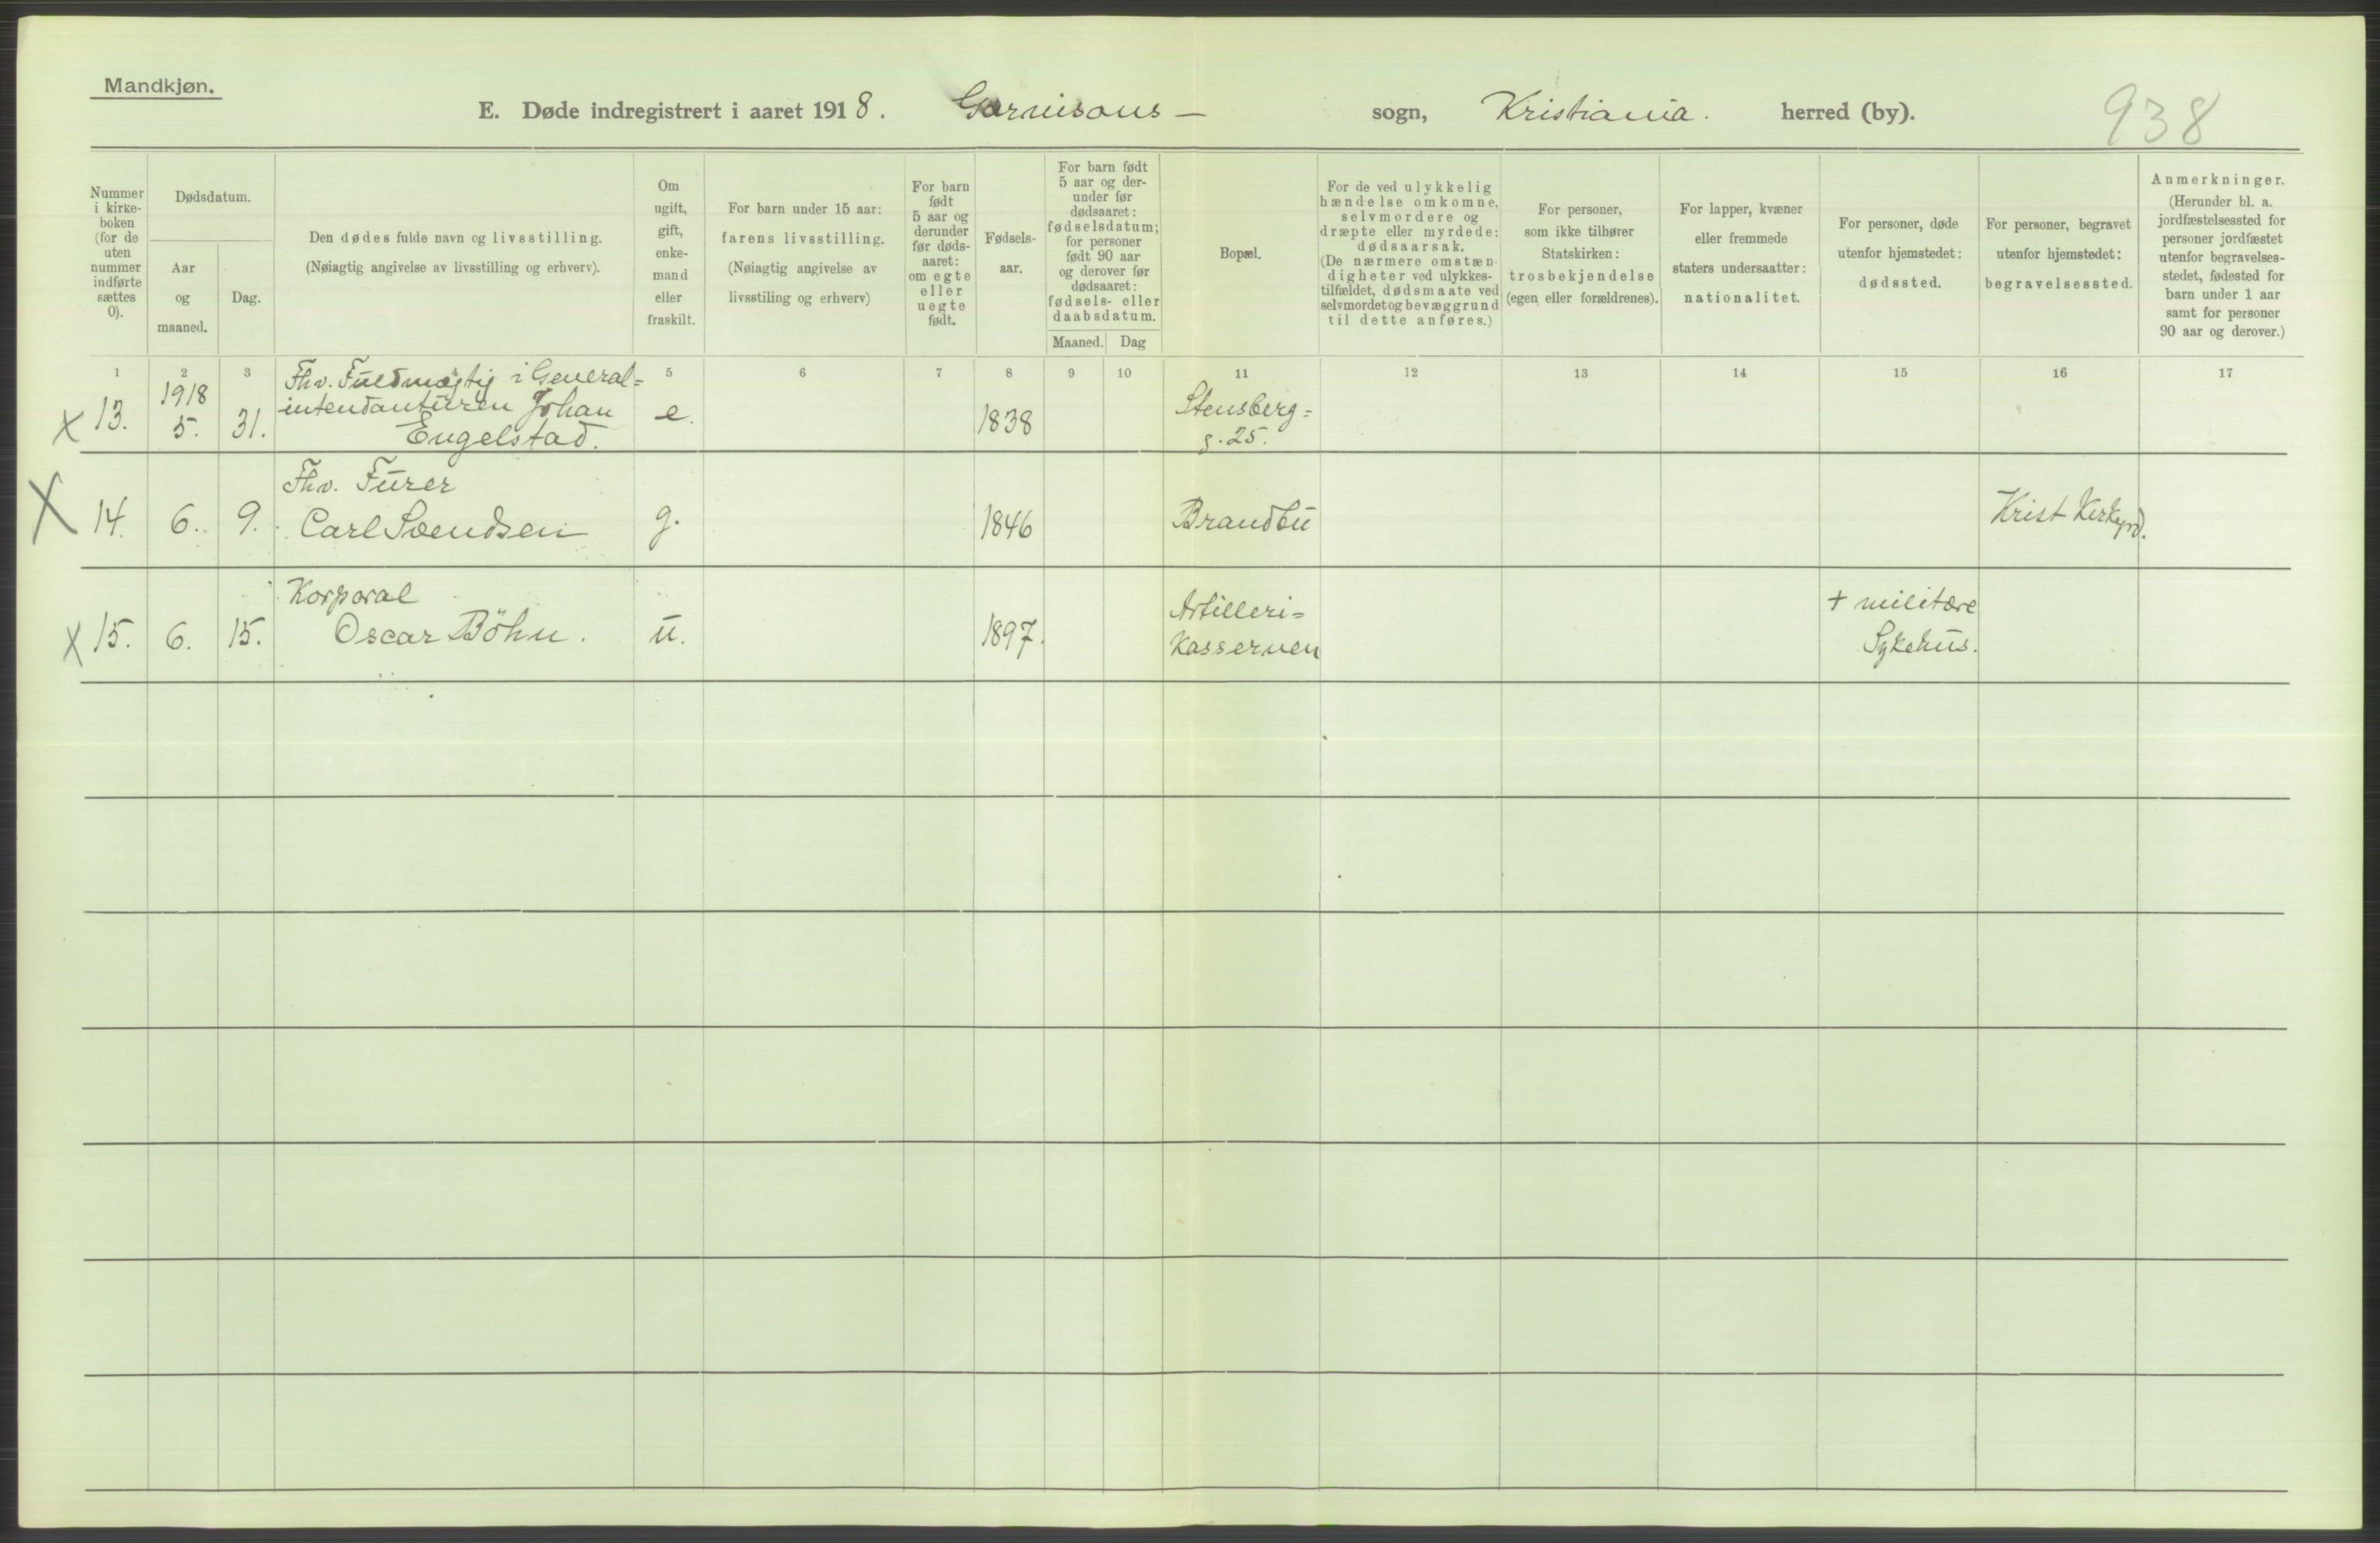 Mandkjøn.
E. Døde indregistrert i aaret 1918. Garnisons- sogn, Kristiania. herred (by).
938
Nummer
i kirke-
boken
(for de
uten
nummer
indførte
sættes
0).
Dødsdatum.
Aar
og
maaned.
Dag.
Den dødes fulde navn og livsstilling.
(Nøiagtig angivelse av livsstilling og erhverv).
Om
ugift,
gift,
enke-
mand
eller
fraskilt.
For barn under 15 aar:
farens livsstilling.
(Nøiagtig angivelse av
livsstiling og erhverv)
For barn
født
5 aar og
derunder
før døds-
aaret:
om egte
eller
uegte
født.
Fødsels-
aar.
For barn født
5 aar og der-
under før
dødsaaret:
fødselsdatum;
for personer
født 90 aar
og derover før
dødsaaret:
fødsels- eller
daabsdatum.
Maaned. Dag
Bopæl.
For de ved ulykkelig
hændelse omkomne,
selvmordere og
dræpte eller myrdede:
dødsaarsak.
(De nærmere omstæn-
digheter ved ulykkes-
tilfældet, dødsmaate ved
selvmordet og bevæggrund
til dette anføres.)
For personer,
som ikke tilhører
Statskirken:
trosbekjendelse
(egen eller forældrenes).
For lapper, kvæner
eller fremmede
staters undersaatter:
nationalitet.
For personer, døde
utenfor hjemstedet:
dødssted.
For personer, begravet
utenfor hjemstedet:
begravelsessted.
Anmerkninger.
(Herunder bl. a.
jordfæstelsessted for
personer jordfæstet
utenfor begravelses-
stedet, fødested for
barn under 1 aar
samt for personer
90 aar og derover.)
1 2 3 5 6 7 8 9 10 11 12 13 14 15 16 17
x 13. 1918
5. 31. Fhv. Fuldmægtig i General=
intendanturen Johan
Engelstad. e. 1838 Stensberg=
g. 25.
X 14. 6. 9. Fhv. Furer
Carl Svendsen g. 1846 Brandbu Krist Kirkegrd.
x 15. 6. 15. Korporal
Oscar Böhn. u. 1897. Artilleri=
Kassernen + militære
Sykehus.